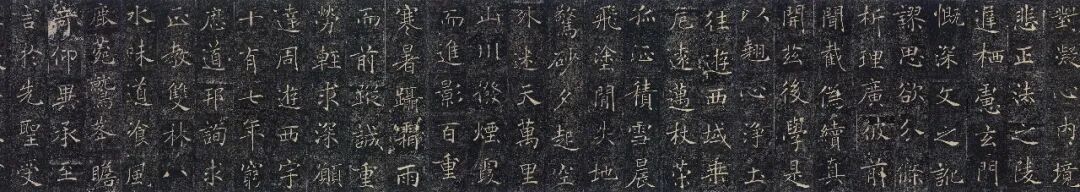 對凝心内境
悲正法之陵
遲栖慮玄門
慨深文之訛
謬思欲分條
析理廣彼前
聞截偽續真
開茲後學是
以翹心淨土
往遊西域乘
危遠邁杖策
孤征積雪晨
飛塗間失地
驚砂夕起空
外迷天萬里
山川撥煙霞
而進影百重
寒暑躡霜雨
而前蹤誠重
勞輕求深願
達周遊西宇
十有七年窮
歷道邦詢求
正教雙林八
水味道飡風
鹿菀鷲峯瞻
奇仰異承至
言於先聖受